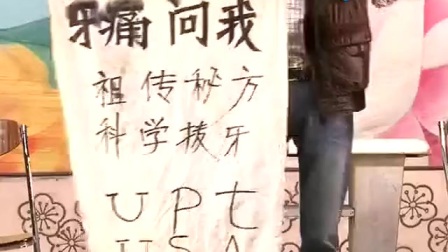 牙痛问我
祖传秘方
科学拔牙
UPt
USA